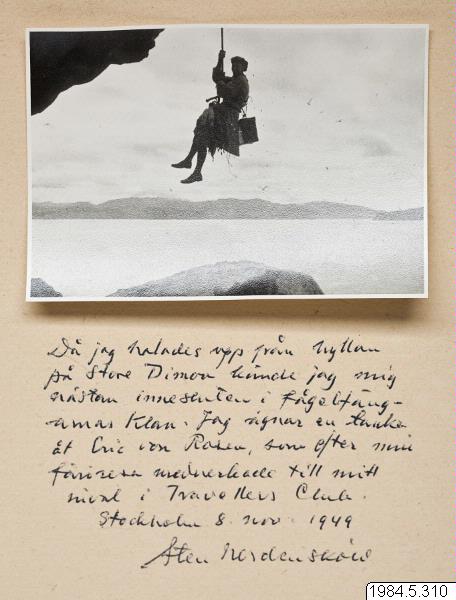 Då jag halades upp från hyllan
på Store Dimon kände jag mig
nästan innesluten i fågelfäng-
arnas Klan. Jag ägnar en tanke
åt Eric von Rosen, som efter min
föriresa medverkade till mitt
inval i Travellers Club.
Stockholm 8. nov. 1949
Sten
1984.5.310